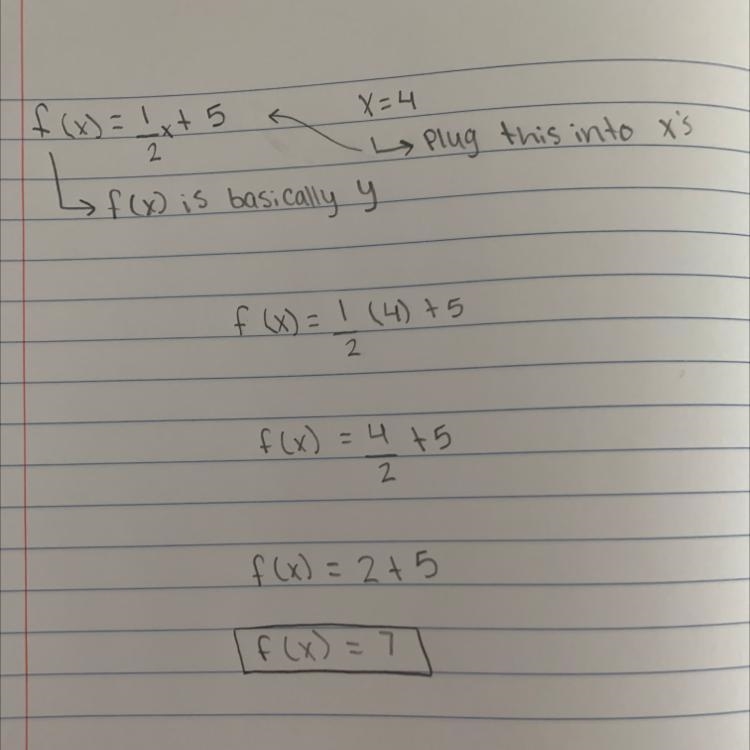 x=4
f(x) = 1/2 x + 5
↳ Plug this into x's
↳ f(x) is basically y
f(x) = 1/2 (4) + 5
f(x) = 4/2 + 5
f(x) = 2 + 5
f(x) = 7